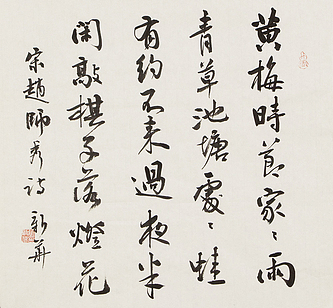 黄梅時節家〻雨
青草池塘處〻蛙
有約不来過夜半
閑敲棋子落燈花
宋趙師秀詩 新華